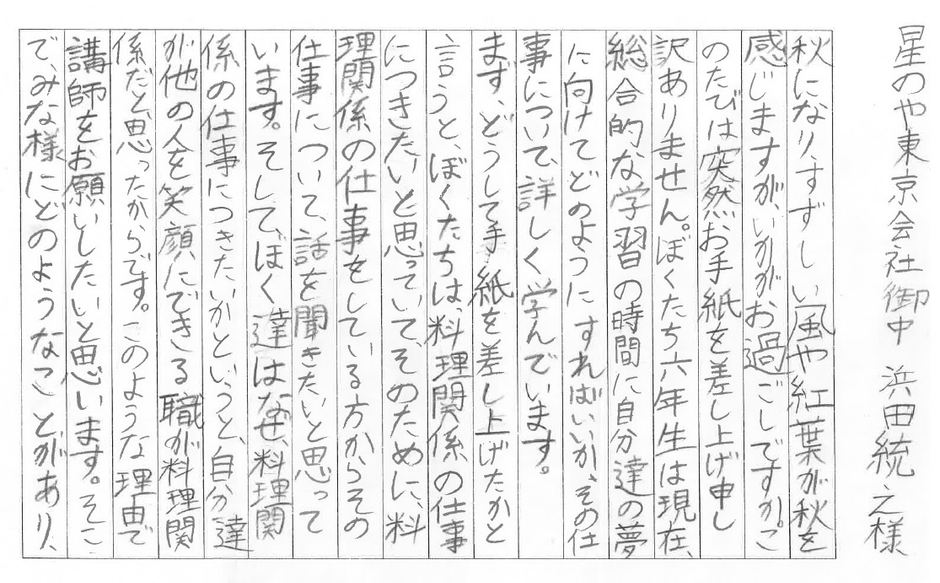 星のや東京会社御中 浜田統之様
秋になり、すずしい風や紅葉が秋を
感じますが、いかがお過ごしですか。こ
のたびは突然お手紙を差し上げ申し
訳ありません。ぼくたち六年生は現在、
総合的な学習の時間に自分達の夢
に向けてどのように すればいいか、その仕
事について、詳しく学んでいます。
まず、どうして手紙を差し上げたかと
言うと、ぼくたちは、料理関係の仕事
につきたいと思っていて、そのために、料
理関係の仕事をしている方からその
仕事について、話を聞きたいと思って
います。そして、ぼく達はなぜ、料理関
係の仕事につきたいかというと、自分達
が他の人を笑顔にできる職が料理関
係だと思ったからです。このような理由で
講師をお願いしたいと思います。そこ
で、みな様にどのようなことがあり、